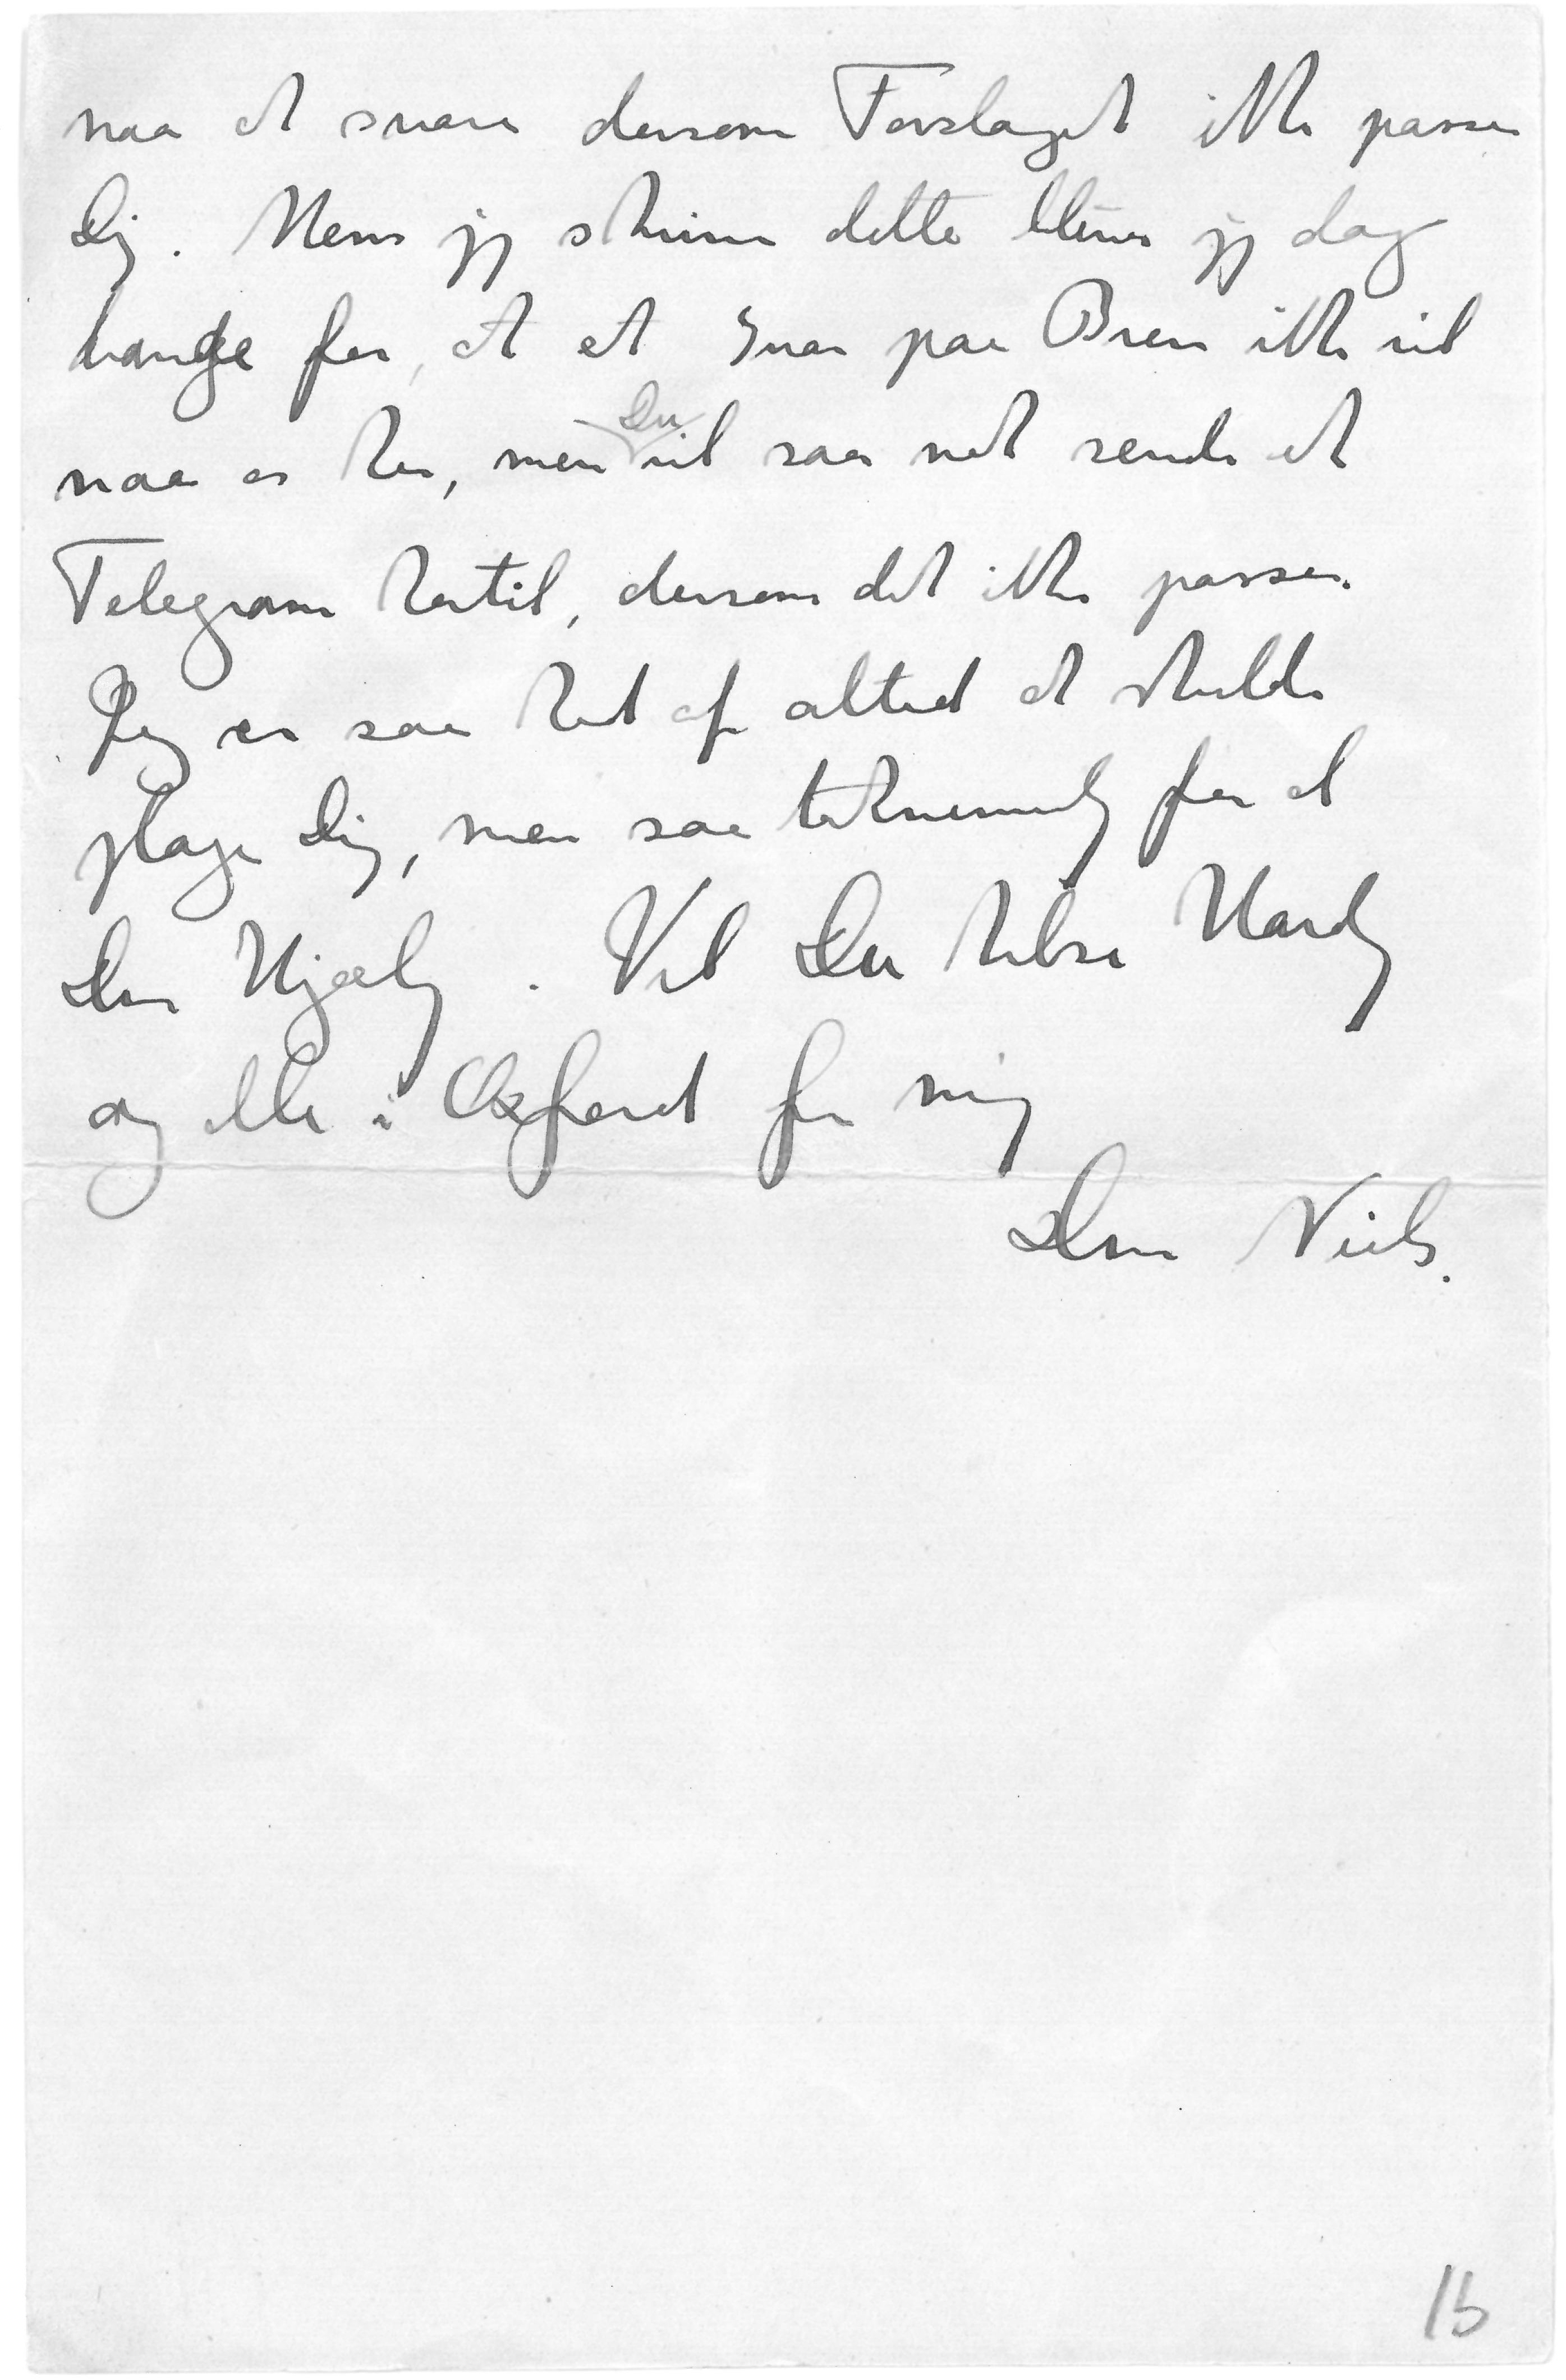 naa at svare dersom Forslaget ikke passer
Dig. Mens jeg skriver dette bliver jeg dog
bange for, at et Svar paa Brev ikke vil
naa os her, men Du vil saa nok sende et
Telegram hertil, dersom det ikke passer.
Jeg er saa ked af altid at skulde
plage Dig, men saa taknemmelig for al
Din Hjælp. Vil Du hilse Hardy
og alle i Oxford fra mig
Din Niels.
15